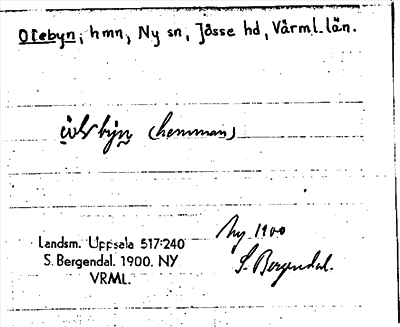 Olebyn, hmn, Ny sn, Jösse hd, Värml. län.
(hemman)
Ny 1900
Landsm. Uppsala 517:240
S. Bergendal. 1900. NY
VRML.
S. Bergendal.